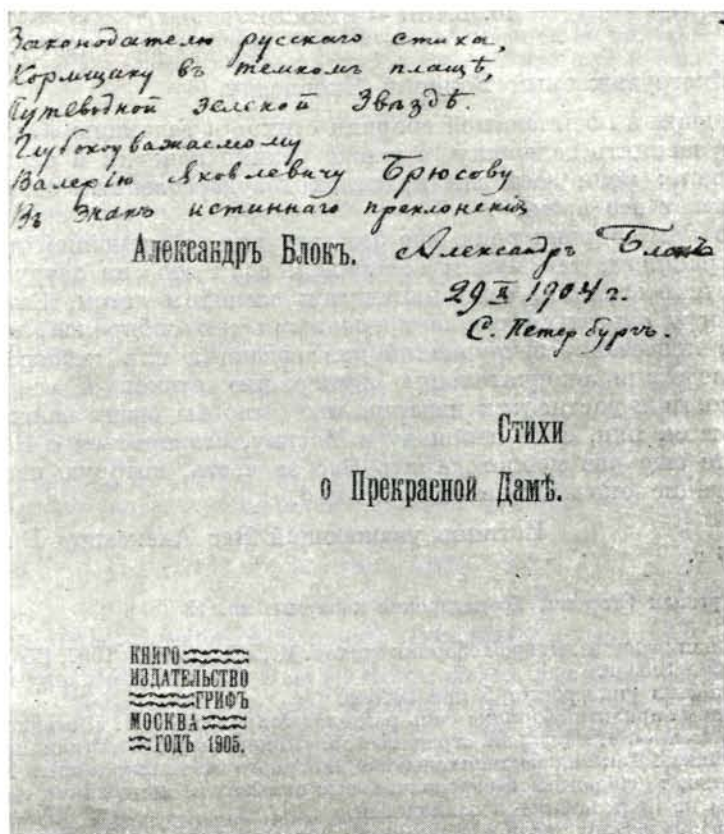 Законодателю русскаго стиха,
Кормщику въ темномъ плащѣ,
Путеводной Зеленой Звѣздѣ.
Глубокоуважаемому
Валерію Яковлевичу Брюсову
Въ знакъ истиннаго преклоненія
Александръ Блокъ. Александръ Блокъ
29 X 1904 г.
С. Петербургъ.
Стихи
о Прекрасной Дамѣ.
КНИГО
ИЗДАТЕЛЬСТВО
ГРИФЪ
МОСКВА
ГОДЪ 1905.